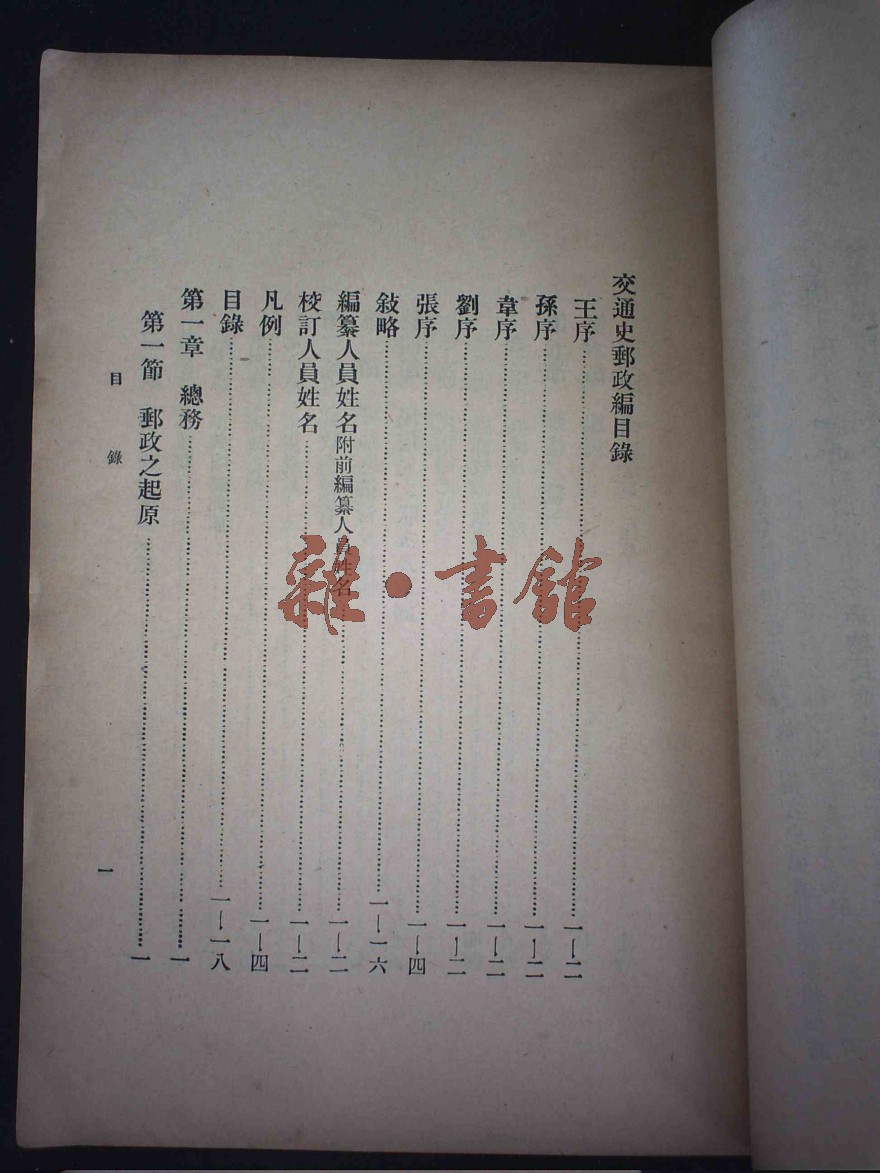 交通史郵政編目錄
王序……一—二
孫序……一—二
韋序……一—二
劉序……一—二
張序……一—四
敍略……一—一六
編纂人員姓名附前編纂人員姓名……一—二
校訂人員姓名……一—二
凡例……一—四
目錄……一—一八
第一章　總務……一
第一節　郵政之起原……一
目錄
一
雜·書館